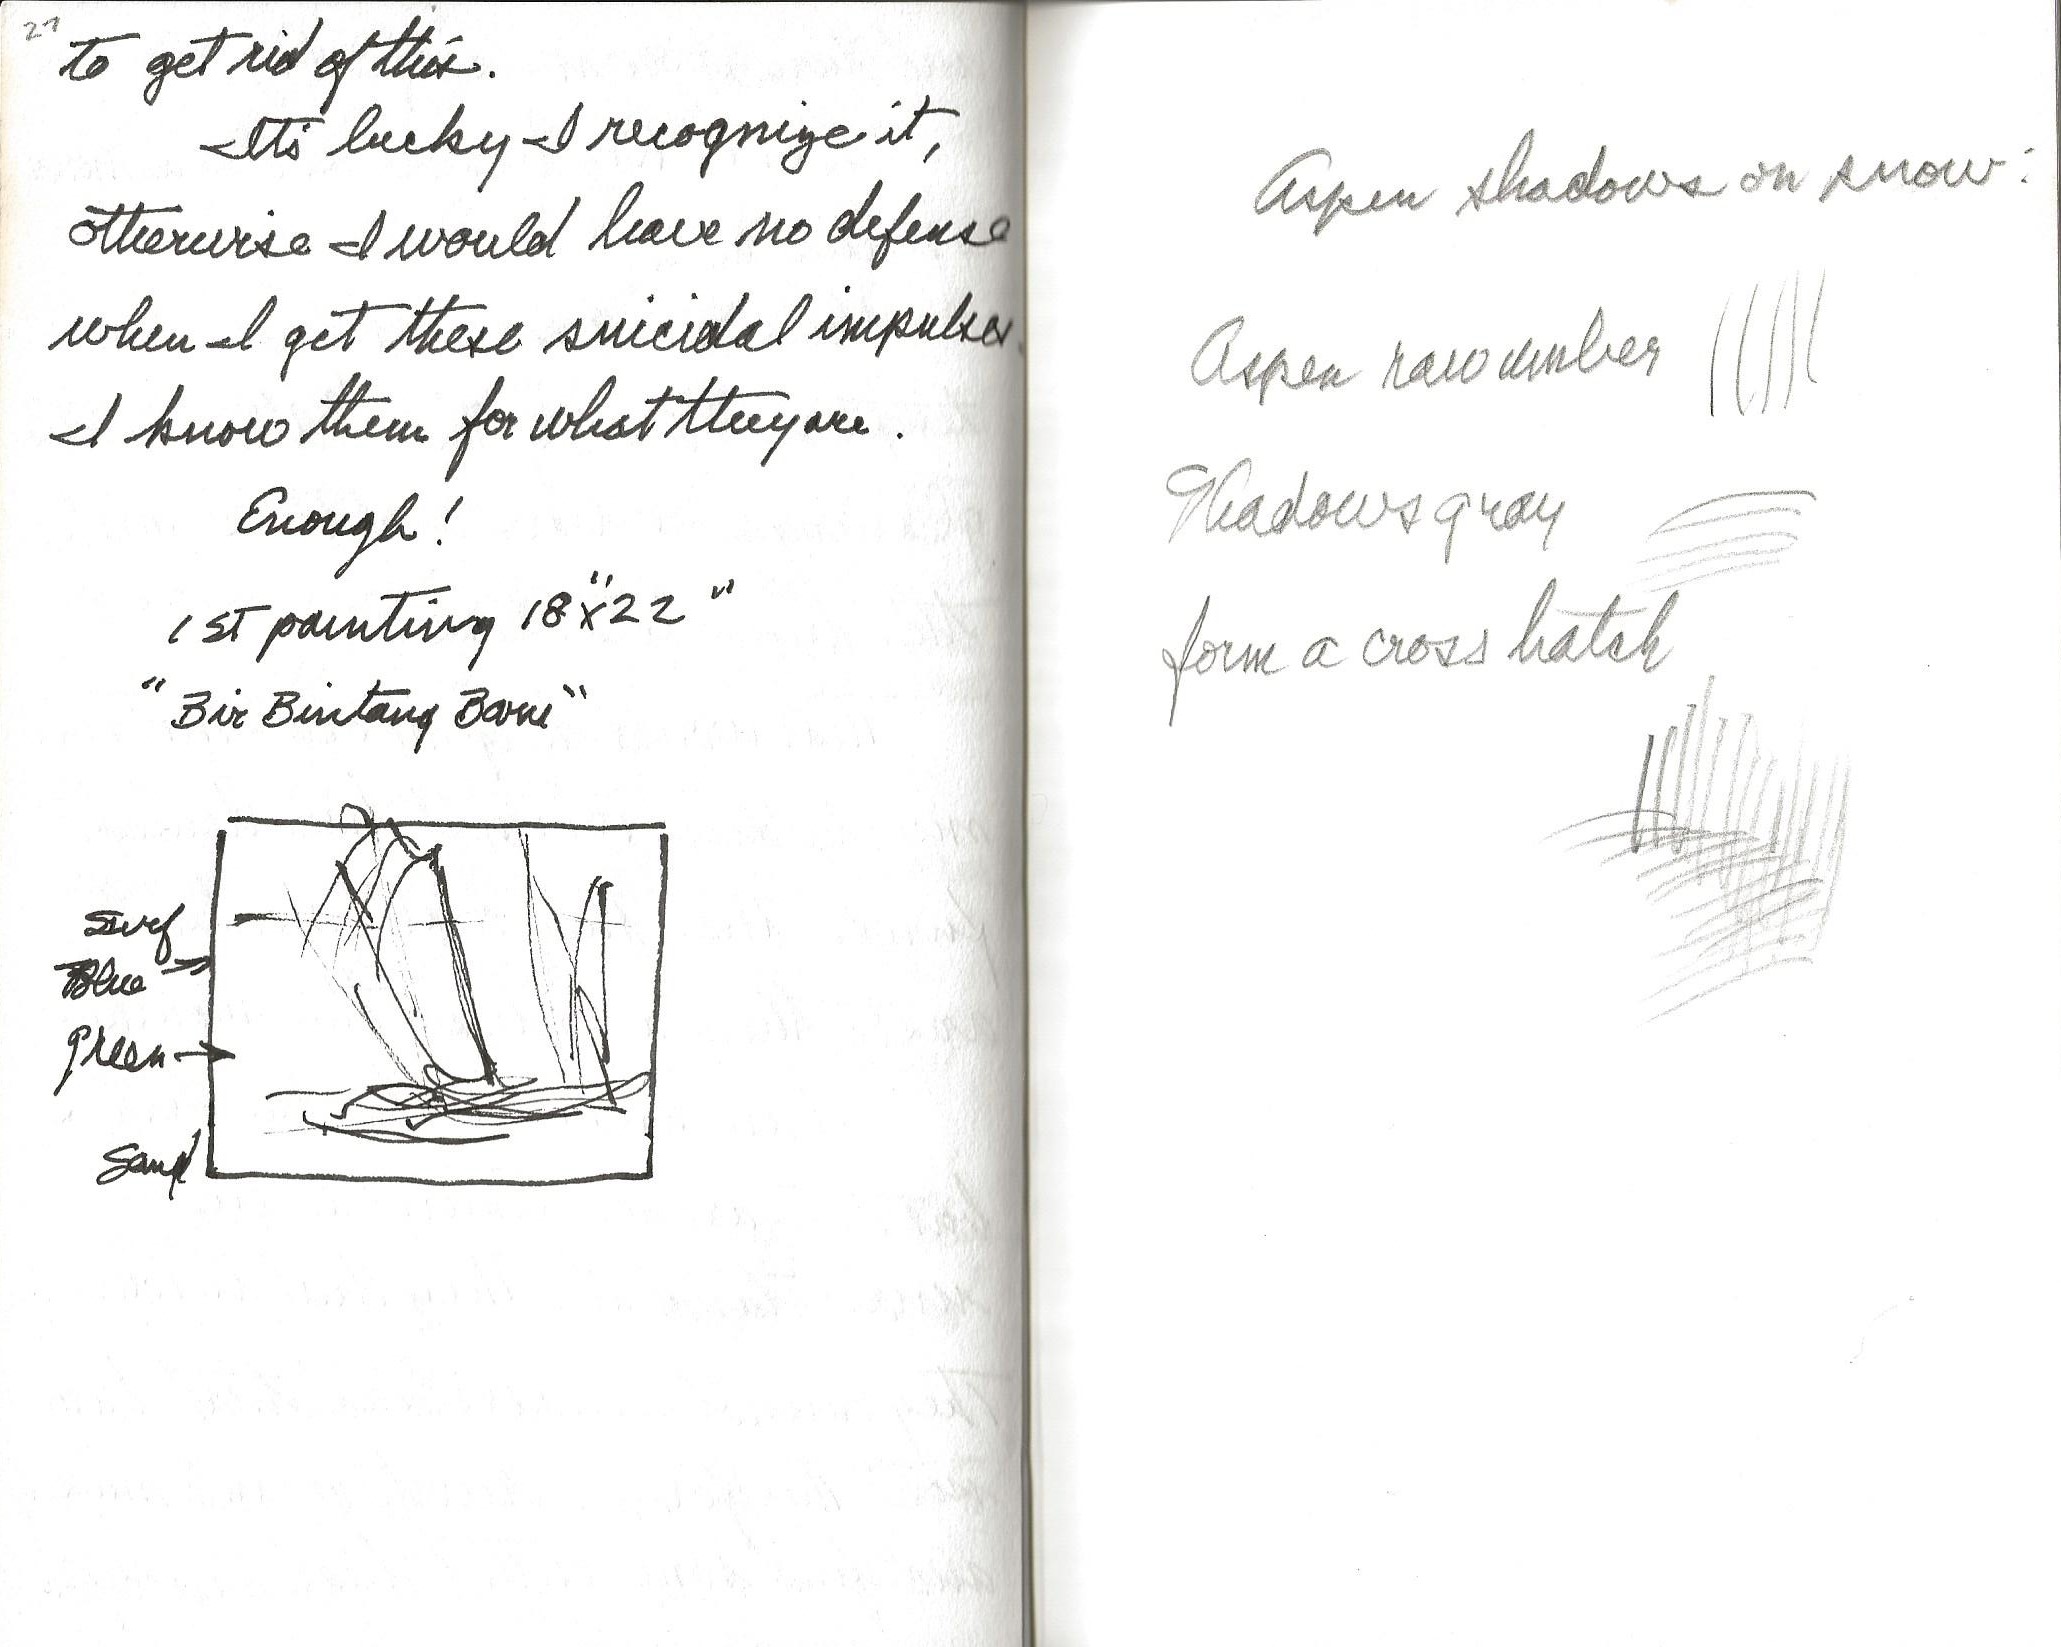 27
to get rid of this.
It's lucky I recognize it,
otherwise I would have no defense
when I get these suicidal impulses.
I know them for what they are.
Enough!
1ST painting 18"x22"
"Bir Bintang
Surf
Blue
Green
Sand
Aspen shadows on snow:
Aspen raw umber
Shadows gray
form a cross hatch